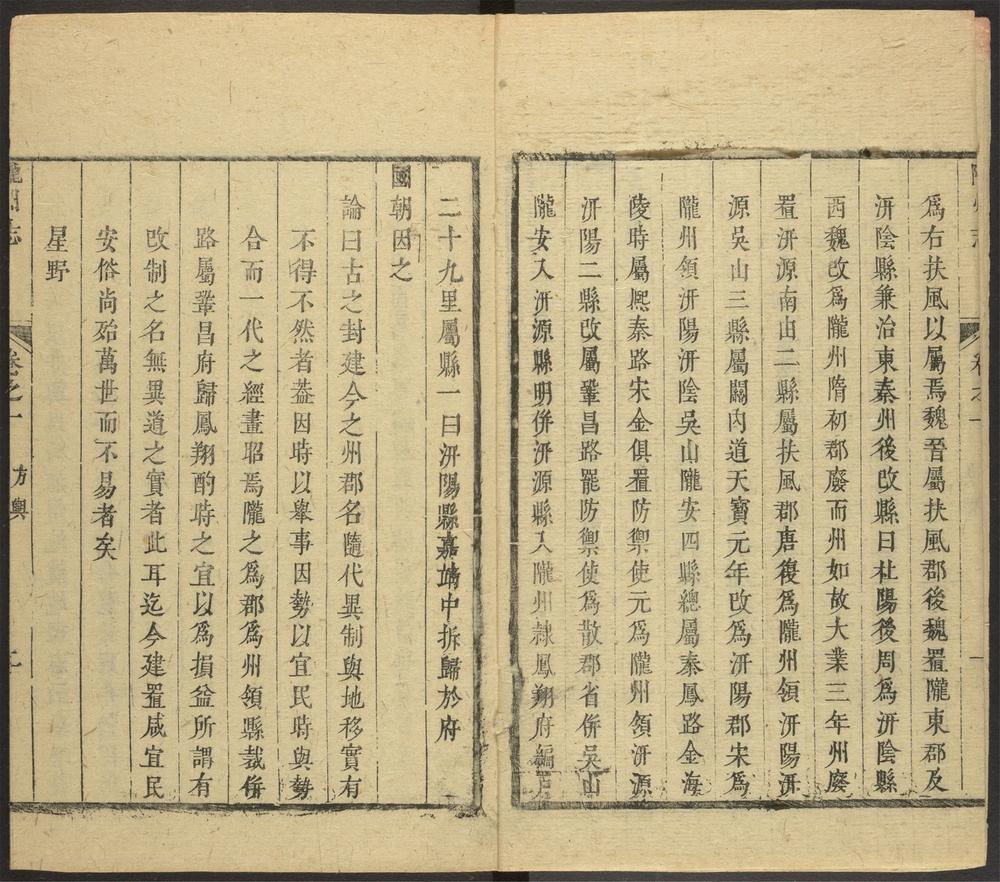 為右扶風以屬焉魏晉屬扶風郡後魏置隴東郡及
汧陰縣兼治東秦州後改縣曰杜陽後周為汧陰縣
西魏改為隴州隋初郡廢而州如故大業三年州廢
置汧源南由二縣屬扶風郡唐復為隴州領汧陽汧
源吳山三縣屬關內道天寶元年改為汧陽郡宋為
隴州領汧陽汧陰吳山隴安四縣總屬秦鳳路金海
陵時屬熈秦路宋金俱置防禦使元為隴州領汧源
汧陽二縣改屬鞏昌路罷防禦使為散郡省併吳山
隴安入汧源縣明併汧源縣入隴州隸鳳翔府編戶
二十九里屬縣一曰汧陽縣嘉靖中拆歸於府
國朝因之
論曰古之封建今之州郡名隨代異制與地移實有
不得不然者葢因時以舉事因勢以宜民時與勢
合而一代之經畫昭焉隴之為郡為州領縣裁併
路屬鞏昌府歸鳳翔酌時之宜以為損益所謂有
改制之名無異道之實者此耳迄今建置咸宜民
安俗尚殆萬世而不易者矣
星野
隴州志
卷之一
方輿